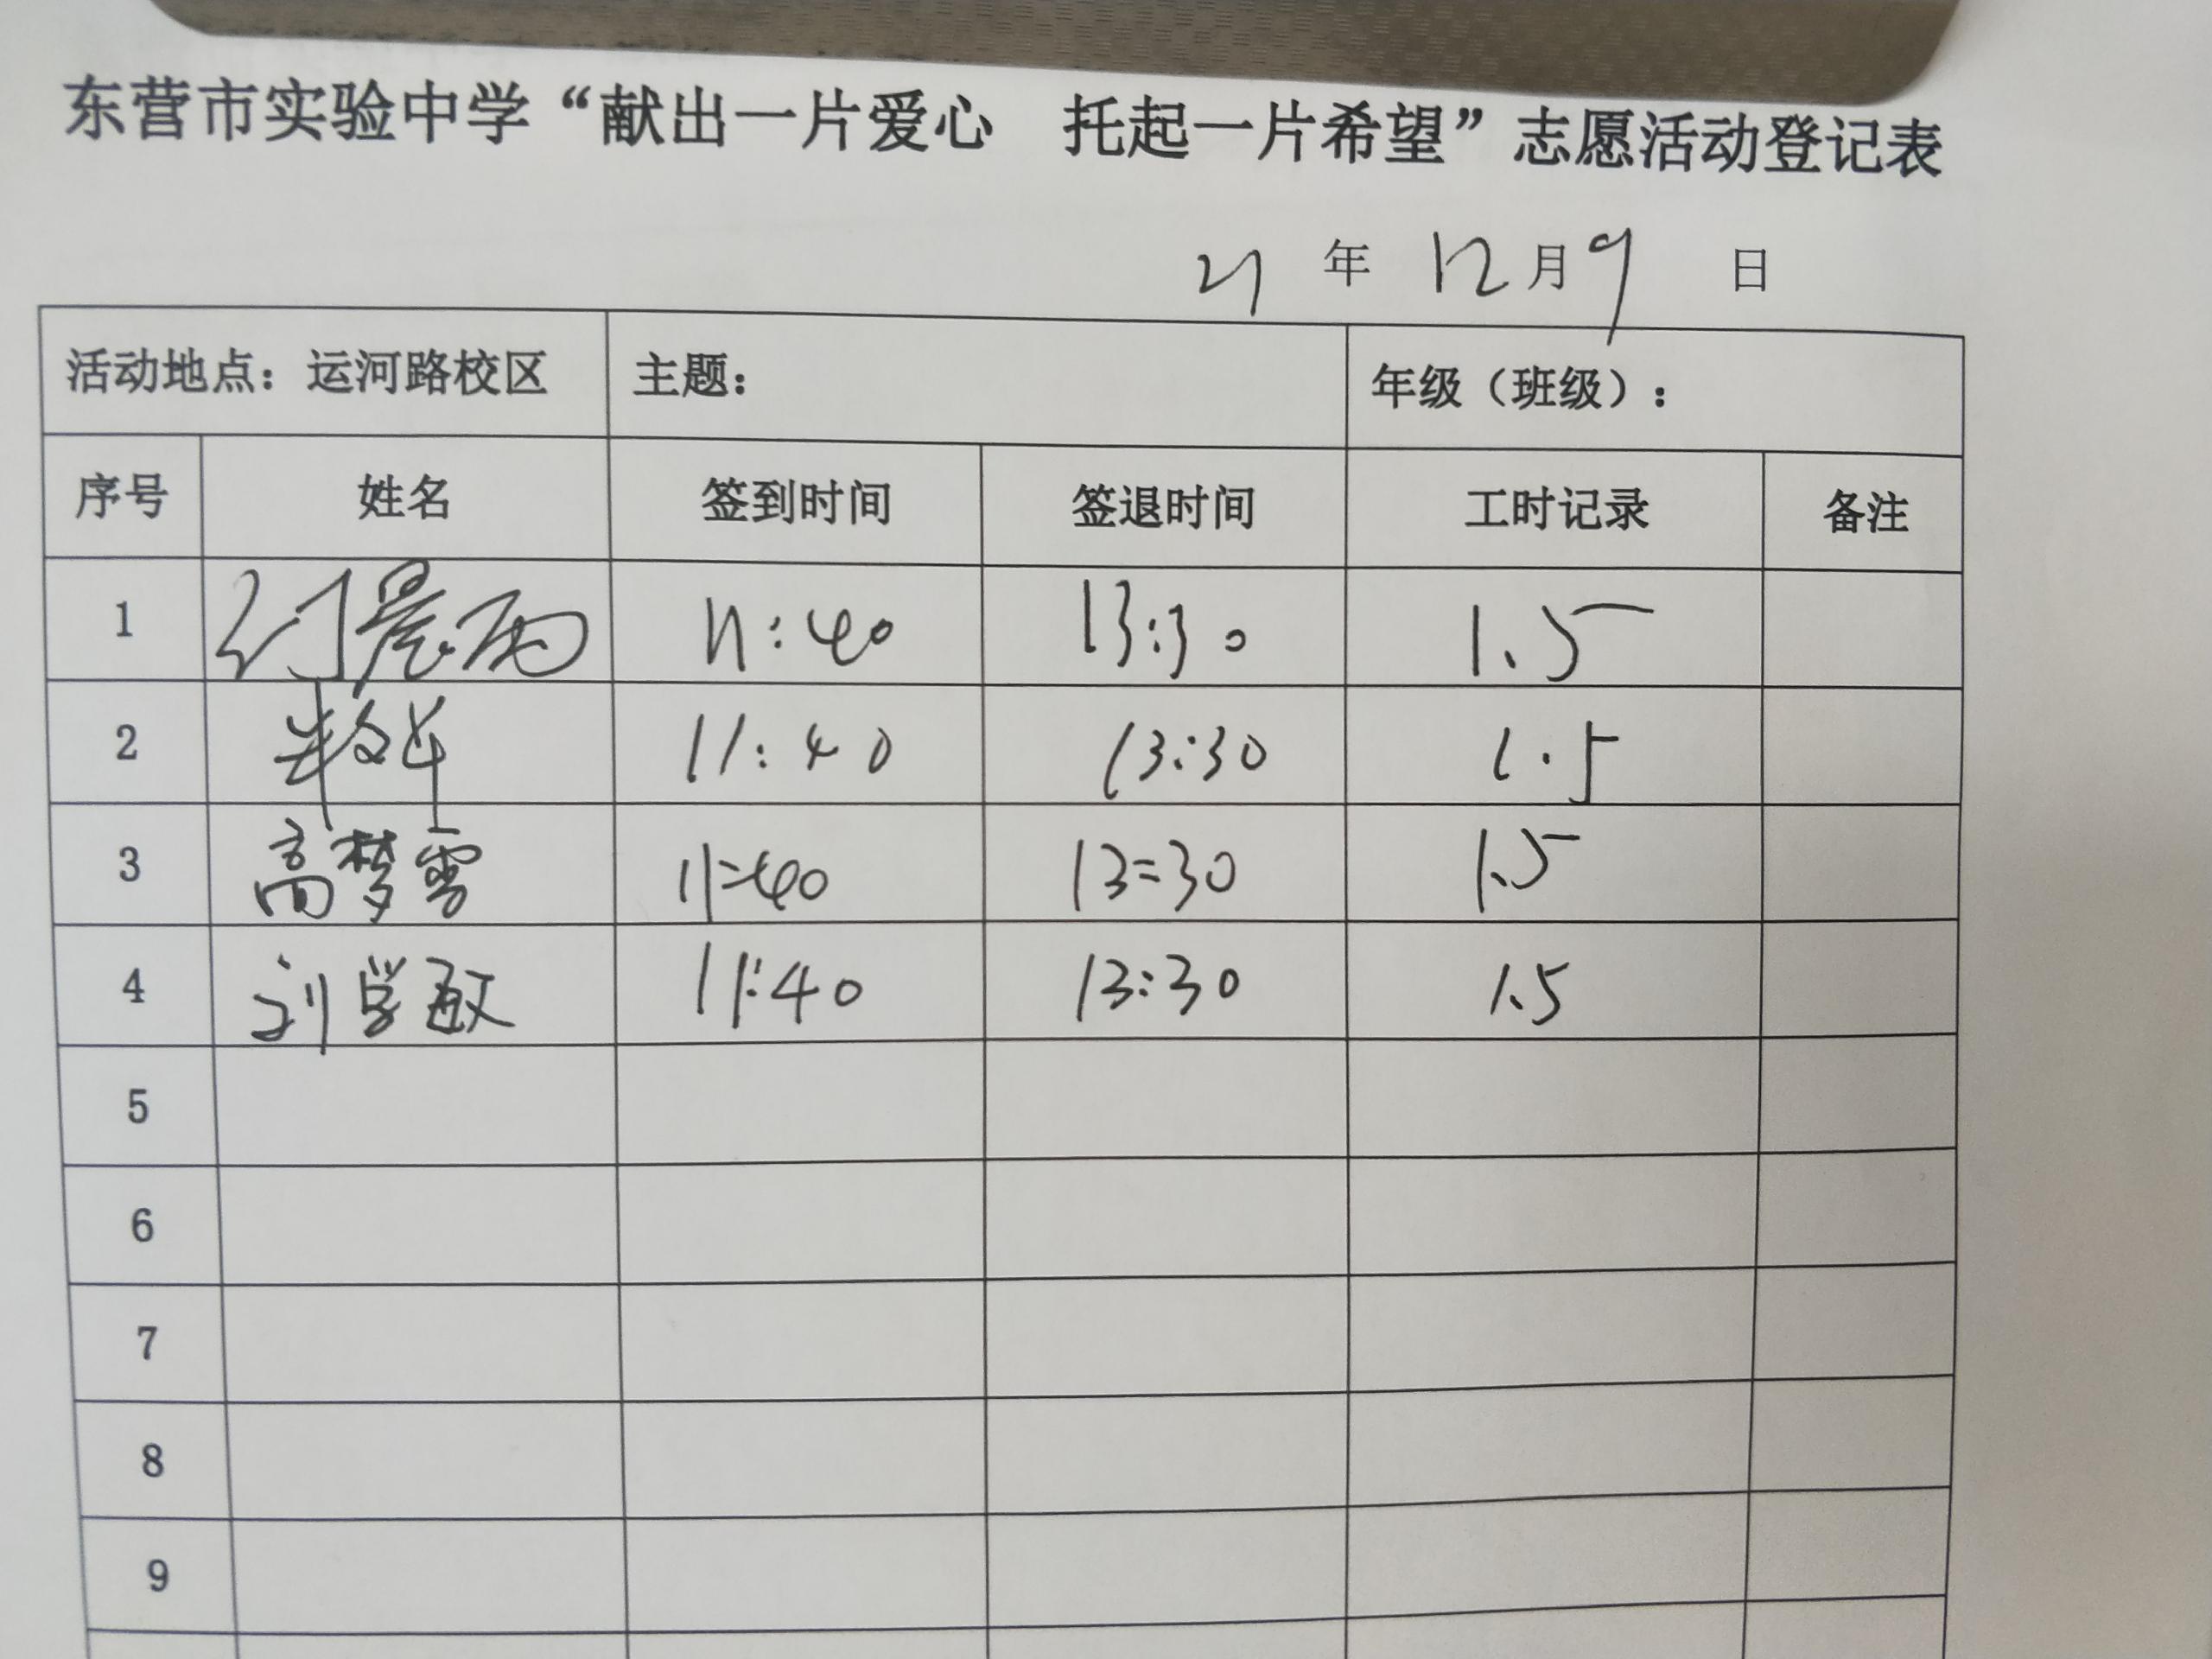 东营市实验中学“献出一片爱心 托起一片希望”志愿活动登记表
21 年 12 月 9 日
活动地点：运河路校区 主题： 年级（班级）：
序号 姓名 签到时间 签退时间 工时记录 备注
1 门晨雨 11:40 13:30 1.5
2 11:40 13:30 1.5
3 高梦雪 11:40 13:30 1.5
4 刘学敏 11:40 13:30 1.5
5
6
7
8
9